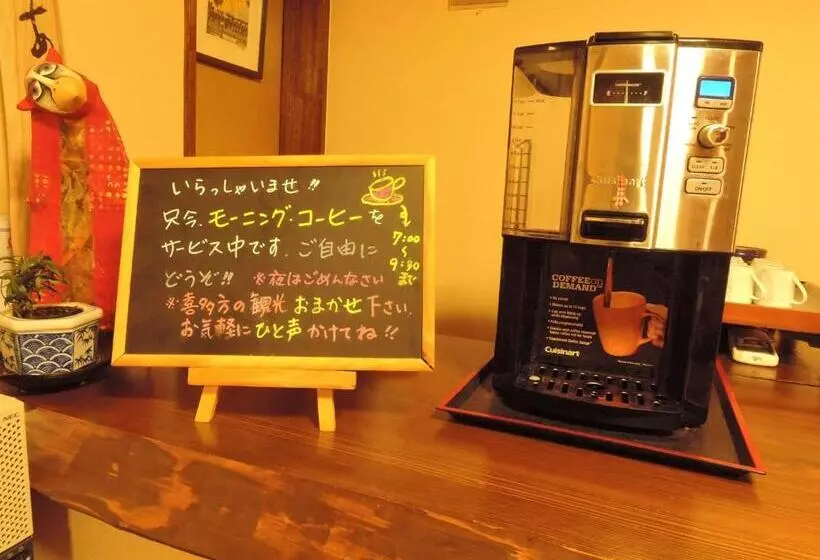 いらっしゃいませ!!
只今、モーニング・コーヒーを
サービス中です。ご自由に
どうぞ!! ※夜はごめんなさい
※喜多方の観光 おまかせ 下さい。
お気軽に ひと声 かけてね!!
7:00
〜
9:30
まで
COFFEE ON
DEMAND
Cuisinart
ON/OFF
NEC